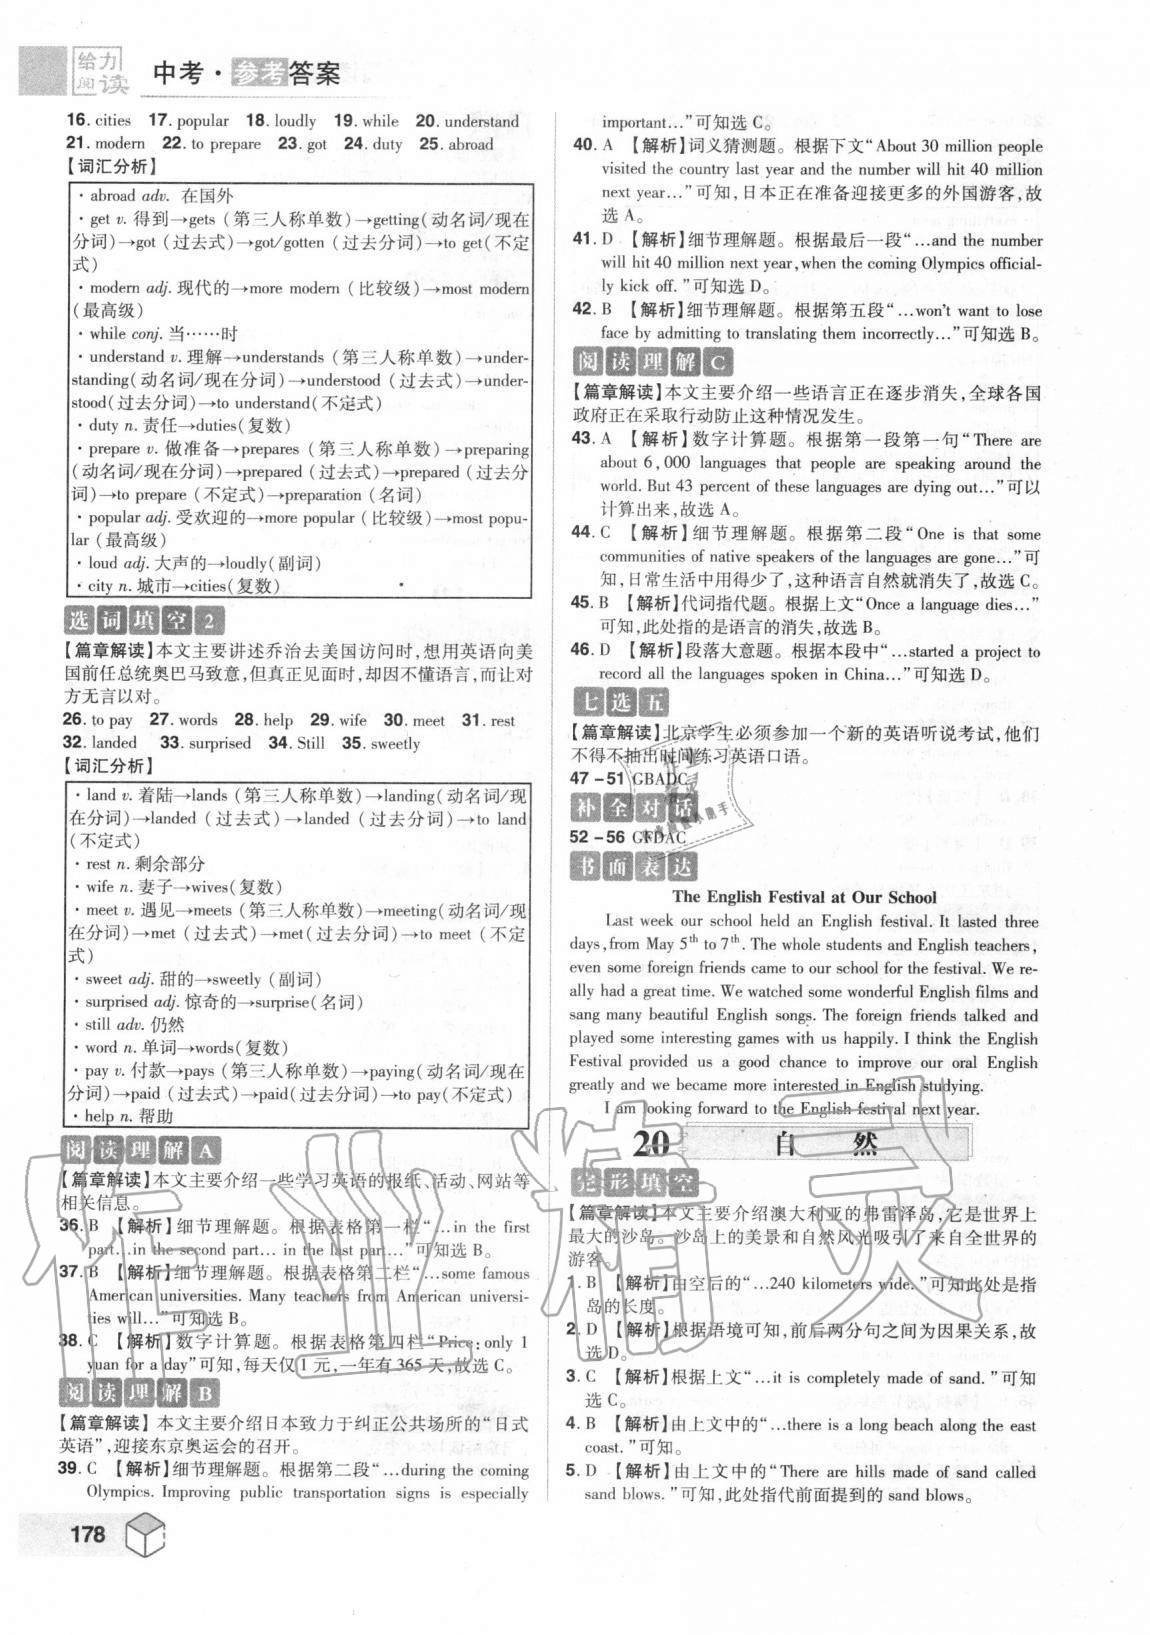 给力
阅读
中考·参考答案
16. cities 17. popular 18. loudly 19. while 20. understand
21. modern 22. to prepare 23. got 24. duty 25. abroad
【词汇分析】
· abroad adv. 在国外
· get v. 得到→gets (第三人称单数)→getting(动名词/现在
分词)→got (过去式)→got/gotten (过去分词)→to get(不定
式)
· modern adj. 现代的→more modern (比较级)→most modern
(最高级)
· while conj. 当……时
· understand v. 理解→understands (第三人称单数)→under-
standing(动名词/现在分词)→understood (过去式)→under-
stood(过去分词)→to understand(不定式)
· duty n. 责任→duties(复数)
· prepare v. 做准备→prepares (第三人称单数)→preparing
(动名词/现在分词)→prepared (过去式)→prepared (过去分
词)→to prepare (不定式)→preparation (名词)
· popular adj. 受欢迎的→more popular (比较级)→most popu-
lar (最高级)
· loud adj. 大声的→loudly(副词)
· city n. 城市→cities(复数)
选词填空2
【篇章解读】本文主要讲述乔治去美国访问时,想用英语向美
国前任总统奥巴马致意,但真正见面时,却因不懂语言,而让对
方无言以对。
26. to pay 27. words 28. help 29. wife 30. meet 31. rest
32. landed 33. surprised 34. Still 35. sweetly
【词汇分析】
· land v. 着陆→lands (第三人称单数)→landing(动名词/现
在分词)→landed (过去式)→landed (过去分词)→to land
(不定式)
· rest n. 剩余部分
· wife n. 妻子→wives(复数)
· meet v. 遇见→meets (第三人称单数)→meeting(动名词/现
在分词)→met (过去式)→met(过去分词)→to meet (不定
式)
· sweet adj. 甜的→sweetly (副词)
· surprised adj. 惊奇的→surprise(名词)
· still adv. 仍然
· word n. 单词→words(复数)
· pay v. 付款→pays (第三人称单数)→paying(动名词/现在
分词)→paid (过去式)→paid(过去分词)→to pay(不定式)
· help n. 帮助
阅读理解A
【篇章解读】本文主要介绍一些学习英语的报纸、活动、网站等
相关信息。
36. B 【解析】细节理解题。根据表格第一栏“…in the first
part…in the second part… in the last part…”可知选 B。
37. B 【解析】细节理解题。根据表格第二栏“…some famous
American universities. Many teachers from American universi-
ties will…”可知选 B。
38. C 【解析】数字计算题。根据表格第四栏“Price: only 1
yuan for a day”可知,每天仅1元,一年有365天,故选 C。
阅读理解B
【篇章解读】本文主要介绍日本致力于纠正公共场所的“日式
英语”,迎接东京奥运会的召开。
39. C 【解析】细节理解题。根据第二段“…during the coming
Olympics. Improving public transportation signs is especially
178
important…”可知选 C。
40. A 【解析】词义猜测题。根据下文“About 30 million people
visited the country last year and the number will hit 40 million
next year…”可知,日本正在准备迎接更多的外国游客,故
选 A。
41. D 【解析】细节理解题。根据最后一段“…and the number
will hit 40 million next year, when the coming Olympics official-
ly kick off.”可知选 D。
42. B 【解析】细节理解题。根据第五段“…won't want to lose
face by admitting to translating them incorrectly…”可知选 B。
阅读理解C
【篇章解读】本文主要介绍一些语言正在逐步消失,全球各国
政府正在采取行动防止这种情况发生。
43. A 【解析】数字计算题。根据第一段第一句“There are
about 6,000 languages that people are speaking around the
world. But 43 percent of these languages are dying out…”可以
计算出来,故选 A。
44. C 【解析】细节理解题。根据第二段“One is that some
communities of native speakers of the languages are gone…”可
知,日常生活中用得少了,这种语言自然就消失了,故选 C。
45. B 【解析】代词指代题。根据上文“Once a language dies…”
可知,此处指的是语言的消失,故选 B。
46. D 【解析】段落大意题。根据本段中“…started a project to
record all the languages spoken in China…”可知选 D。
七选五
【篇章解读】北京学生必须参加一个新的英语听说考试,他们
不得不抽出时间练习英语口语。
47-51 GBADC
补全对话
52-56 GFDAC
书面表达
The English Festival at Our School
Last week our school held an English festival. It lasted three
days, from May 5th to 7th. The whole students and English teachers,
even some foreign friends came to our school for the festival. We re-
ally had a great time. We watched some wonderful English films and
sang many beautiful English songs. The foreign friends talked and
played some interesting games with us happily. I think the English
Festival provided us a good chance to improve our oral English
greatly and we became more interested in English studying.
I am looking forward to the English festival next year.
20 自 然
完形填空
【篇章解读】本文主要介绍澳大利亚的弗雷泽岛,它是世界上
最大的沙岛。沙岛上的美景和自然风光吸引了来自全世界的
游客。
1. B 【解析】由空后的“…240 kilometers wide.”可知此处是指
岛的长度。
2. D 【解析】根据语境可知,前后两分句之间为因果关系,故
选 D。
3. C 【解析】根据上文“…it is completely made of sand.”可知
选 C。
4. B 【解析】由上文中的“…there is a long beach along the east
coast.”可知。
5. D 【解析】由上文中的“There are hills made of sand called
sand blows.”可知,此处指代前面提到的 sand blows。
作业精灵